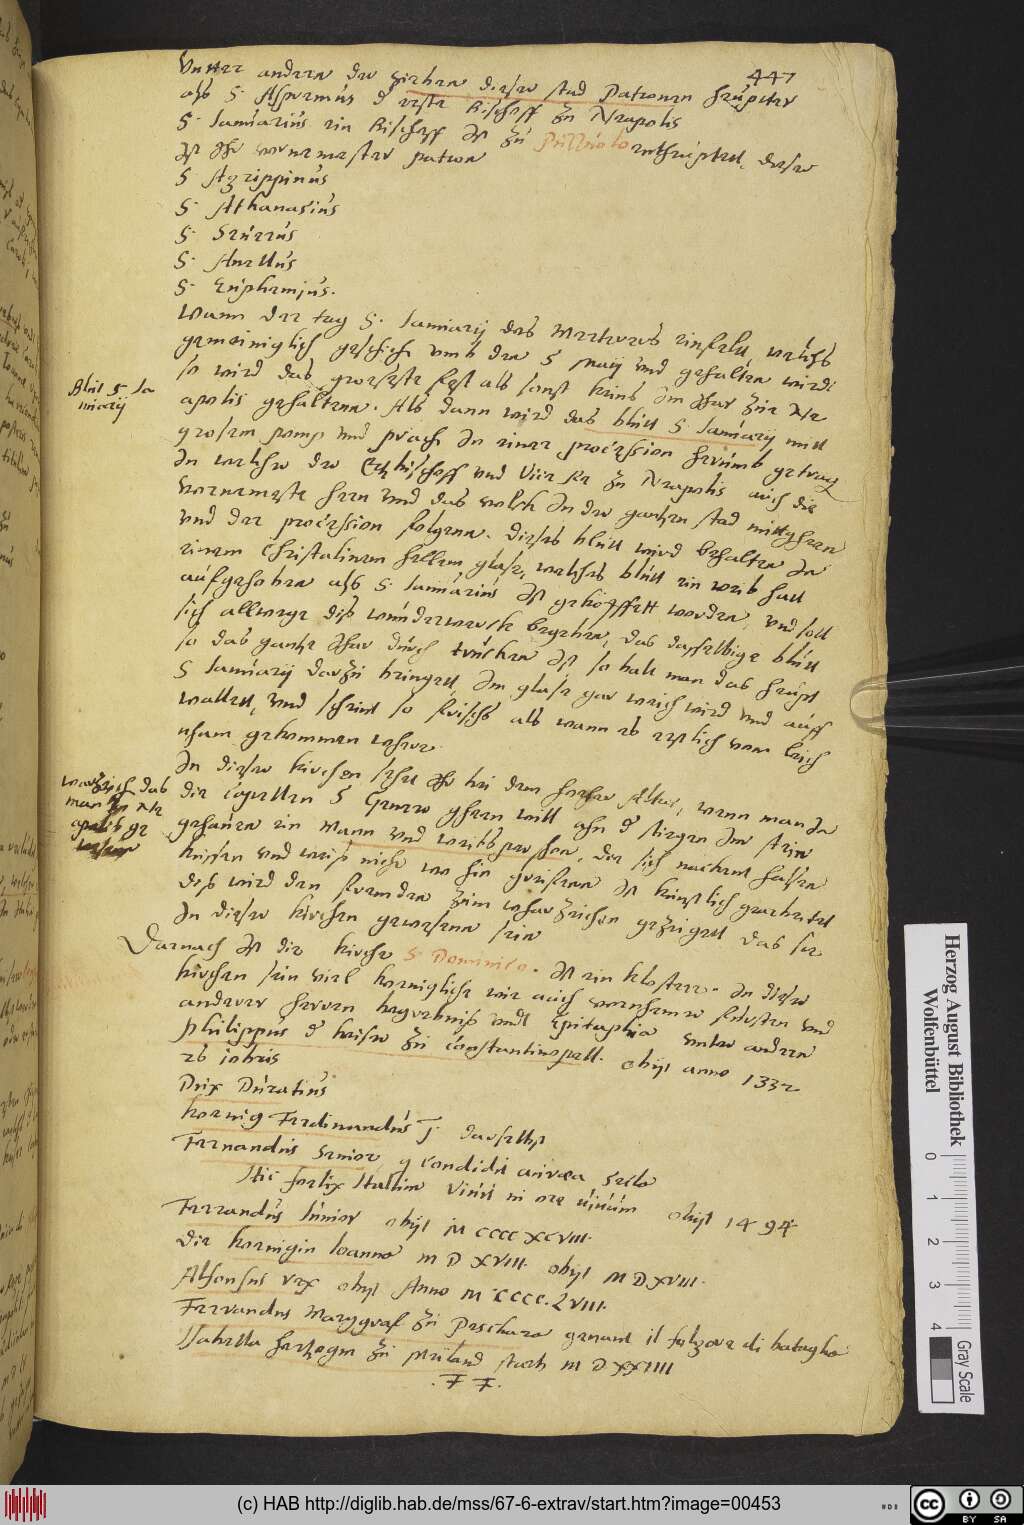 447
Unter andern der sieben dieser stad Patronen heupter
als S. Aspremus d erste Bischoff zu Neapolis
S. Januarius ein Bischoff ist zu Puzzuolo entheuptett, dieser
ist ihr vornemester patron
S. Agrippinus
S. Athanasius
S. Seuerus
S. Anellus
S. Euphemius.
Wann der tag S. Januarij des Merterers einfelt, welchs
gemeiniglich geschicht umb den 5 Maij und gehalten wirdt
so wird das groesseste fest als sonst keins im Jhar zur Ne
apolis gehaltenn. Als dann wird das blutt S. Januarij mitt
Blut S. Ja
nuarij
grosem pomp und prach in einer procession herumb getrag
in welcher der Ertzbischoff und Vice Re zu Neapolis auch die
vornemeste hern und das volck in der gantzen stad mittgheen
und der procession folgenn. dieses blutt wird behalten in
einem Christalinem hellem glase, welches blutt ein weib hatt
aufgehoben als S. Januarius ist gekopffett worden, und soll
sich allwege dis wunderwerck begeben, das dasselbige blutt
so das gantze Jhar durch trucken ist, so balt man das heupt
S Januarij darzu bringett, im glase gar weich wird und auff
wallett, und scheint so frisch als wann es erstlich vom leich
nham gekommen where.
In dieser kirchen sehet ihr bei dem hohen Altar, wenn man in
die Capellen S Genaro gheen will ahn d stiegen im stein
gehauen ein Mann und weibs person, die sich nackent hassen
warzeich das
man zu Ne
apolis ge
wesen
kussen und weiss nicht wo hin greiffenn ist kunstlich gearbeitet
dis wird den fremden zum wharzeichen gezeigett das sie
in dieser kirchen gewesenn sein
Darnach ist die kirche S Dominico. ist ein kloster. In dieser
kirchen sein viel koenigliche wie auch vornheme fursten und
anderer herren begrebnis undt Epitaphia unter andern
Philippus d keiser zu Constantinopell. obijt anno 1332
28 iobris
Dux Duratius
Koenig Ferdinandus I daselbst
Fernandus Senior, q condidit aurea Secla
Hic foelix Italiae Viuit in ore uiuum obijt 1494
Ferrandus Iunior obijt M CCCC XCVIII.
Die koenigin Joanna M D XVIII. obijt M D XVIII.
Alfonsus rex obijt Anno M CCCC. LVIII.
Ferrandus Marggraf zu Peschara genant il folgore di bataglia
Isabella hertzogin zu Meiland starb M D XXIIII
. F F .
Herzog August Bibliothek
Wolfenbüttel
0 1 2 3 4
Gray Scale
(c) HAB http://diglib.hab.de/mss/67-6-extrav/start.htm?image=00453
cc BY SA